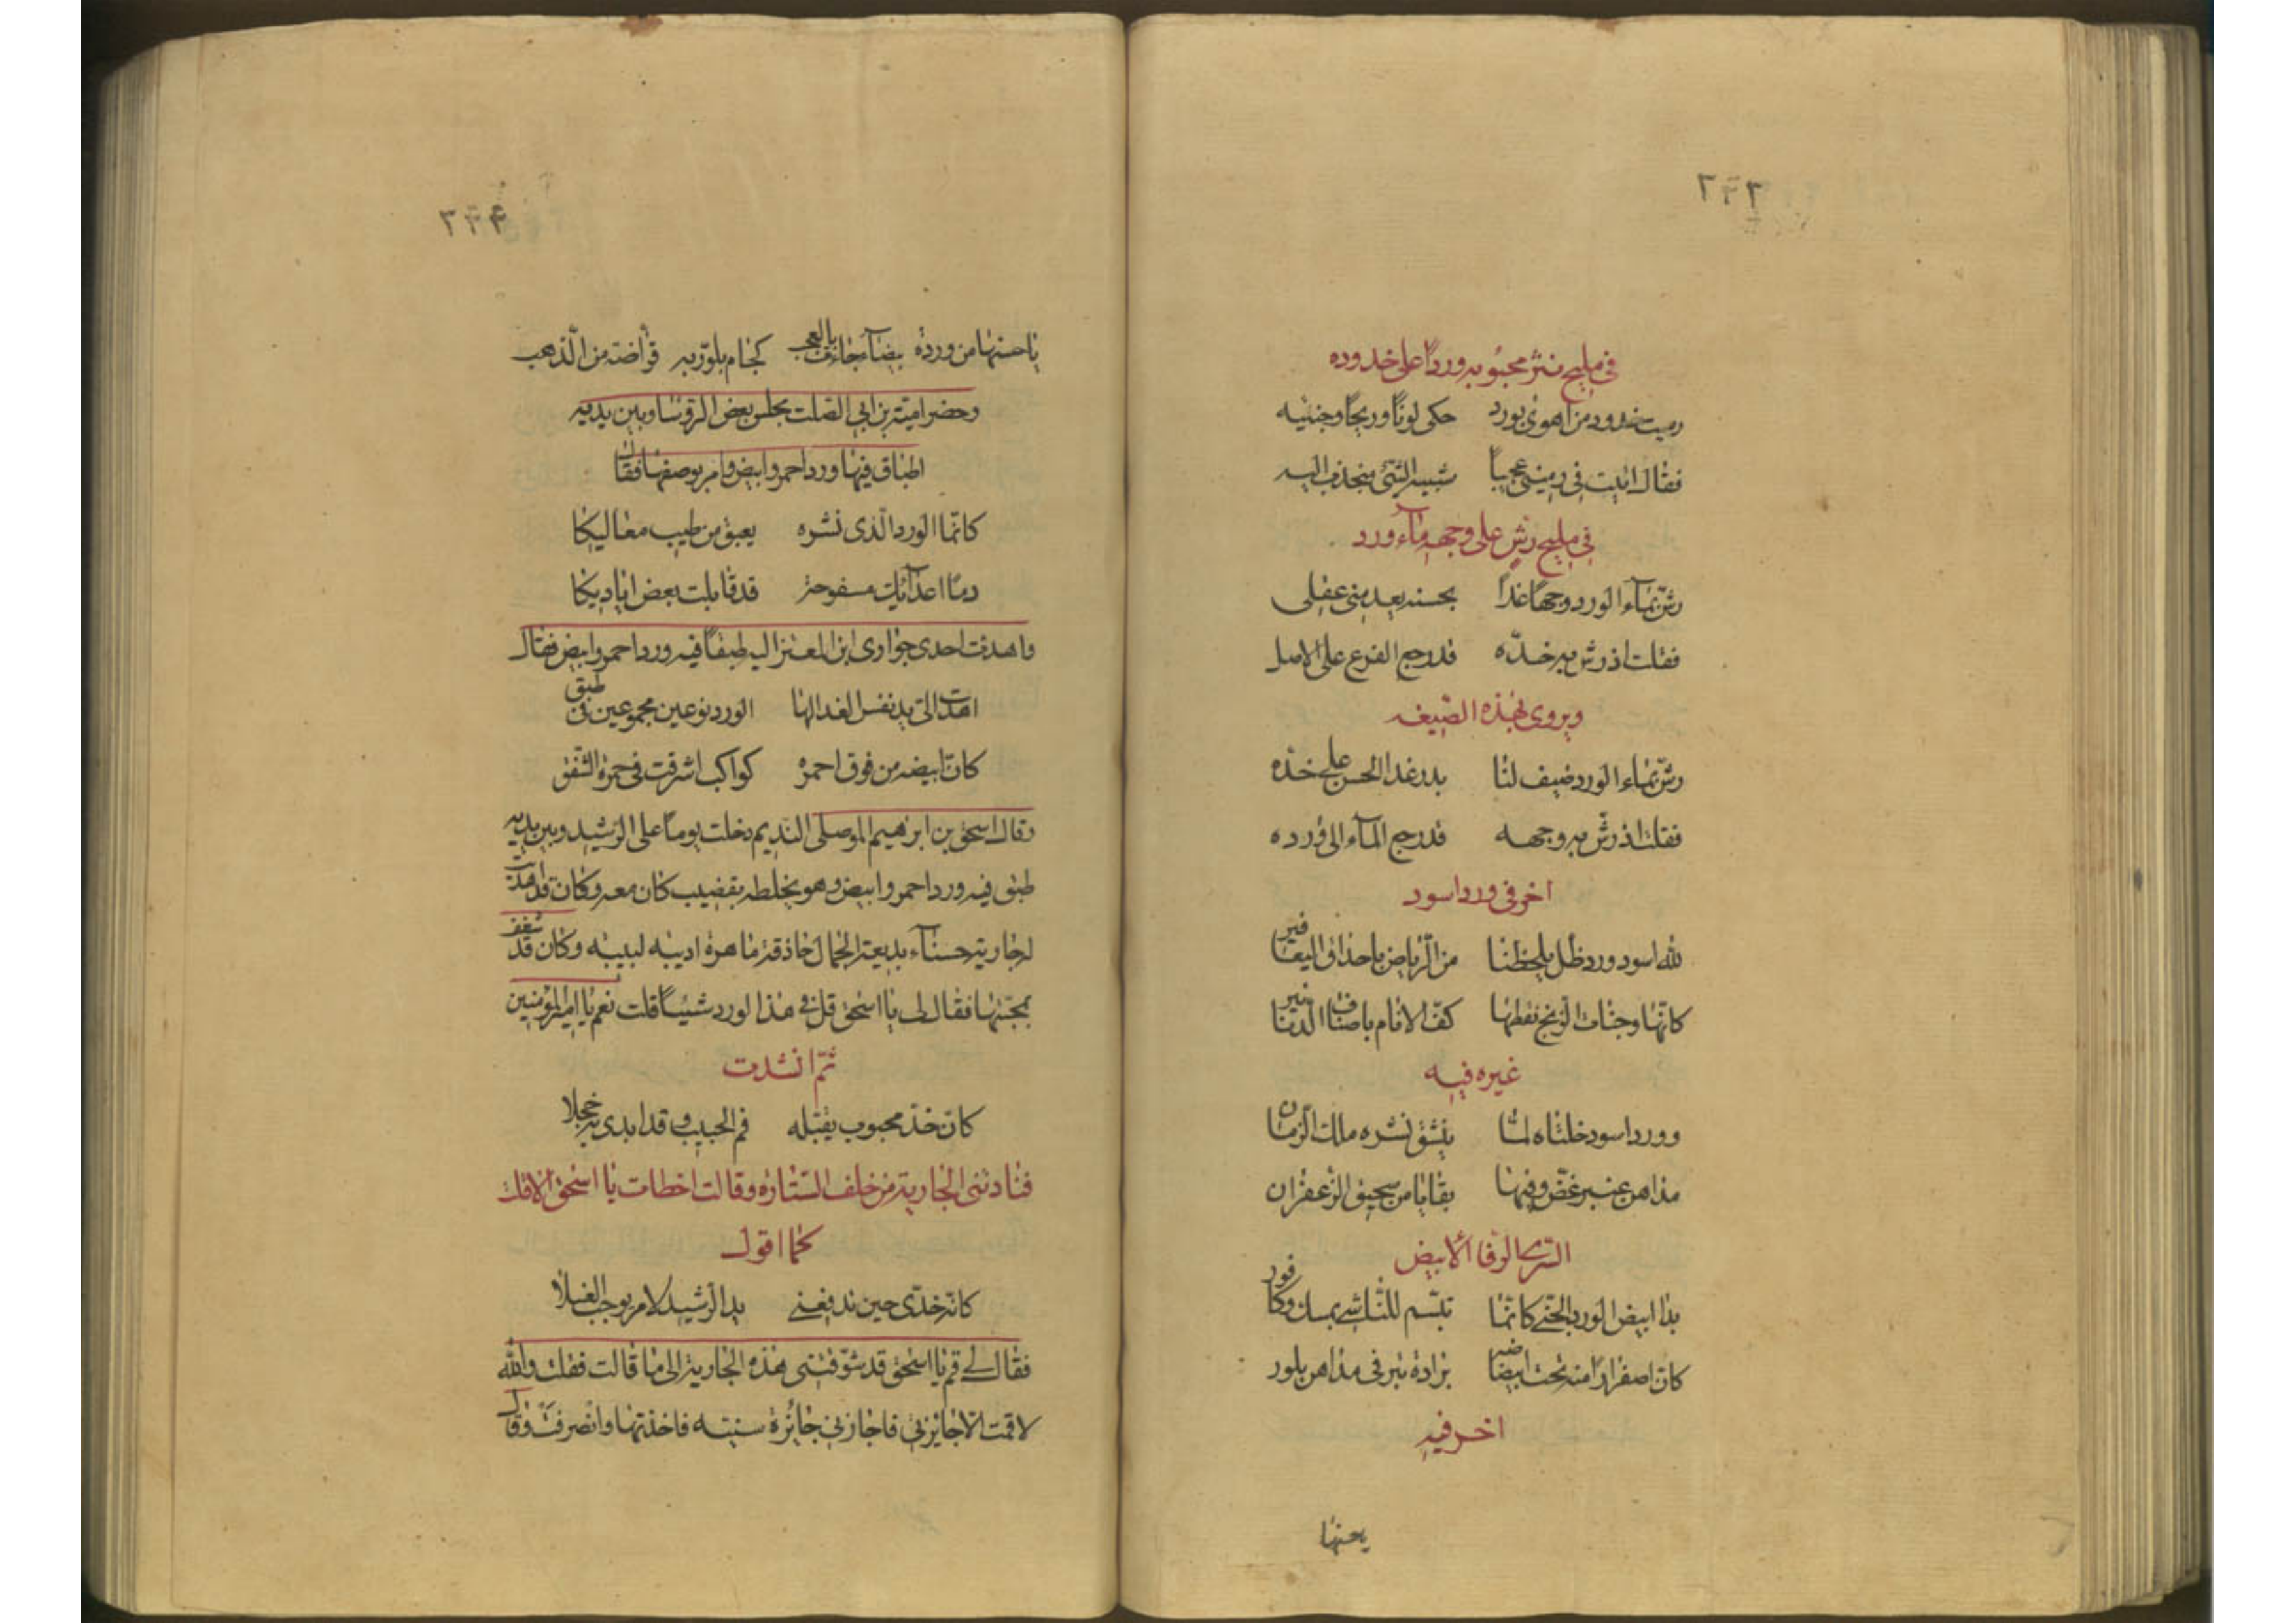 ٢٣٣
في مليح نثر محبوبه وردًا على خدوده
رميت خدود من اهوى بورد حكى لونًا وريحًا وجنتيه
فقال اتيت في رميتي عجيبًا شبيه الشئ منجذب اليه
في مليح رش على وجهه مآء ورد
رشّ بمآء الورد وجهًا غدا بحسنه يعيد مني عقلي
فقلت اذ رش به خدّه قد رجع الفرع على الاصل
ويروى بهذه الصيغه
رشّ بماء الورد ضيف لنا بدر غدا الحسن على خدّه
فقلت اذ رشّ به وجهه قد رجع المآء الى ورده
اخر في ورد اسود
لله اسود ورد ظل يلحظنا من الرياض باحداق اليعافير
كانّها وجنات الزنج نقطها كفّ الانام بانصاف الدنانير
غيره فيه
وورد اسود خلناه لمّا ينشق نشره ملك الزمان
مداهن عنبر غضّ وفيها بقايا من سحيق الزعفران
السّري الرفا الابيض
بدا ابيض الورد الجنّي كانّما تبسّم للناشي بمسك وكافور
كان اصفرارًا منه تحت ابيضاضه برادة تبر في مداهن بلور
اخر فيه
يحنها
٢٣٤
يا حسنها من وردة بيضآء جاءت بالعجب كجام بلوّر به قراضة من الذهب
وحضر اميّة بن ابي الصلت مجلس بعض الرؤسا وبين يديه
اطباق فيها ورد احمر وابيض وامر بوصفها فقال
كانّما الورد الّذى نشره يعبق من طيب معاليكا
دمًا اعدآئك مسفوحة قد قابلت بعض اياديكا
واهدت احدى جوارى ابن المعتز اليه طبقًا فيه ورد احمر وابيض فقال
اهدت الىّ يد نفسي الفدا لها الورد نوعين مجموعين في طبق
كانّ ابيضه من فوق احمره كواكب اشرقت في حمرة الشفق
وقال اسحق بن ابرهيم الموصلى النديم دخلت يومًا على الرشيد وبين يديه
طبق فيه ورد احمر وابيض وهو يخلطه بقضيب كان معه وكان قد اهدت
له جارية حسنآء بديعة الجمال حاذقة ماهرة اديبه لبيبه وكان قد شغف
بمحبّتها فقال لى يا اسحق قل في هذا الورد شيئًا قلت نعم يا امير المؤمنين
ثمّ انشدت
كانّ خدّ محبوب يقبّله فم الحبيب وقد ابدى به خجلا
فنادتنى الجارية من خلف الستارة وقالت اخطات يا اسحق الا قلت
كما اقول
كانّه خدّى حين تدفعني يد الرشيد لامر يوجب الغسلا
فقال لى قم يا اسحق قد شوّقتنى هذه الجارية الى ما قالت فقلت والله
لا قمت الا بجايزتي فاجازني جائزة سنيّه فاخذتها وانصرفت وقال